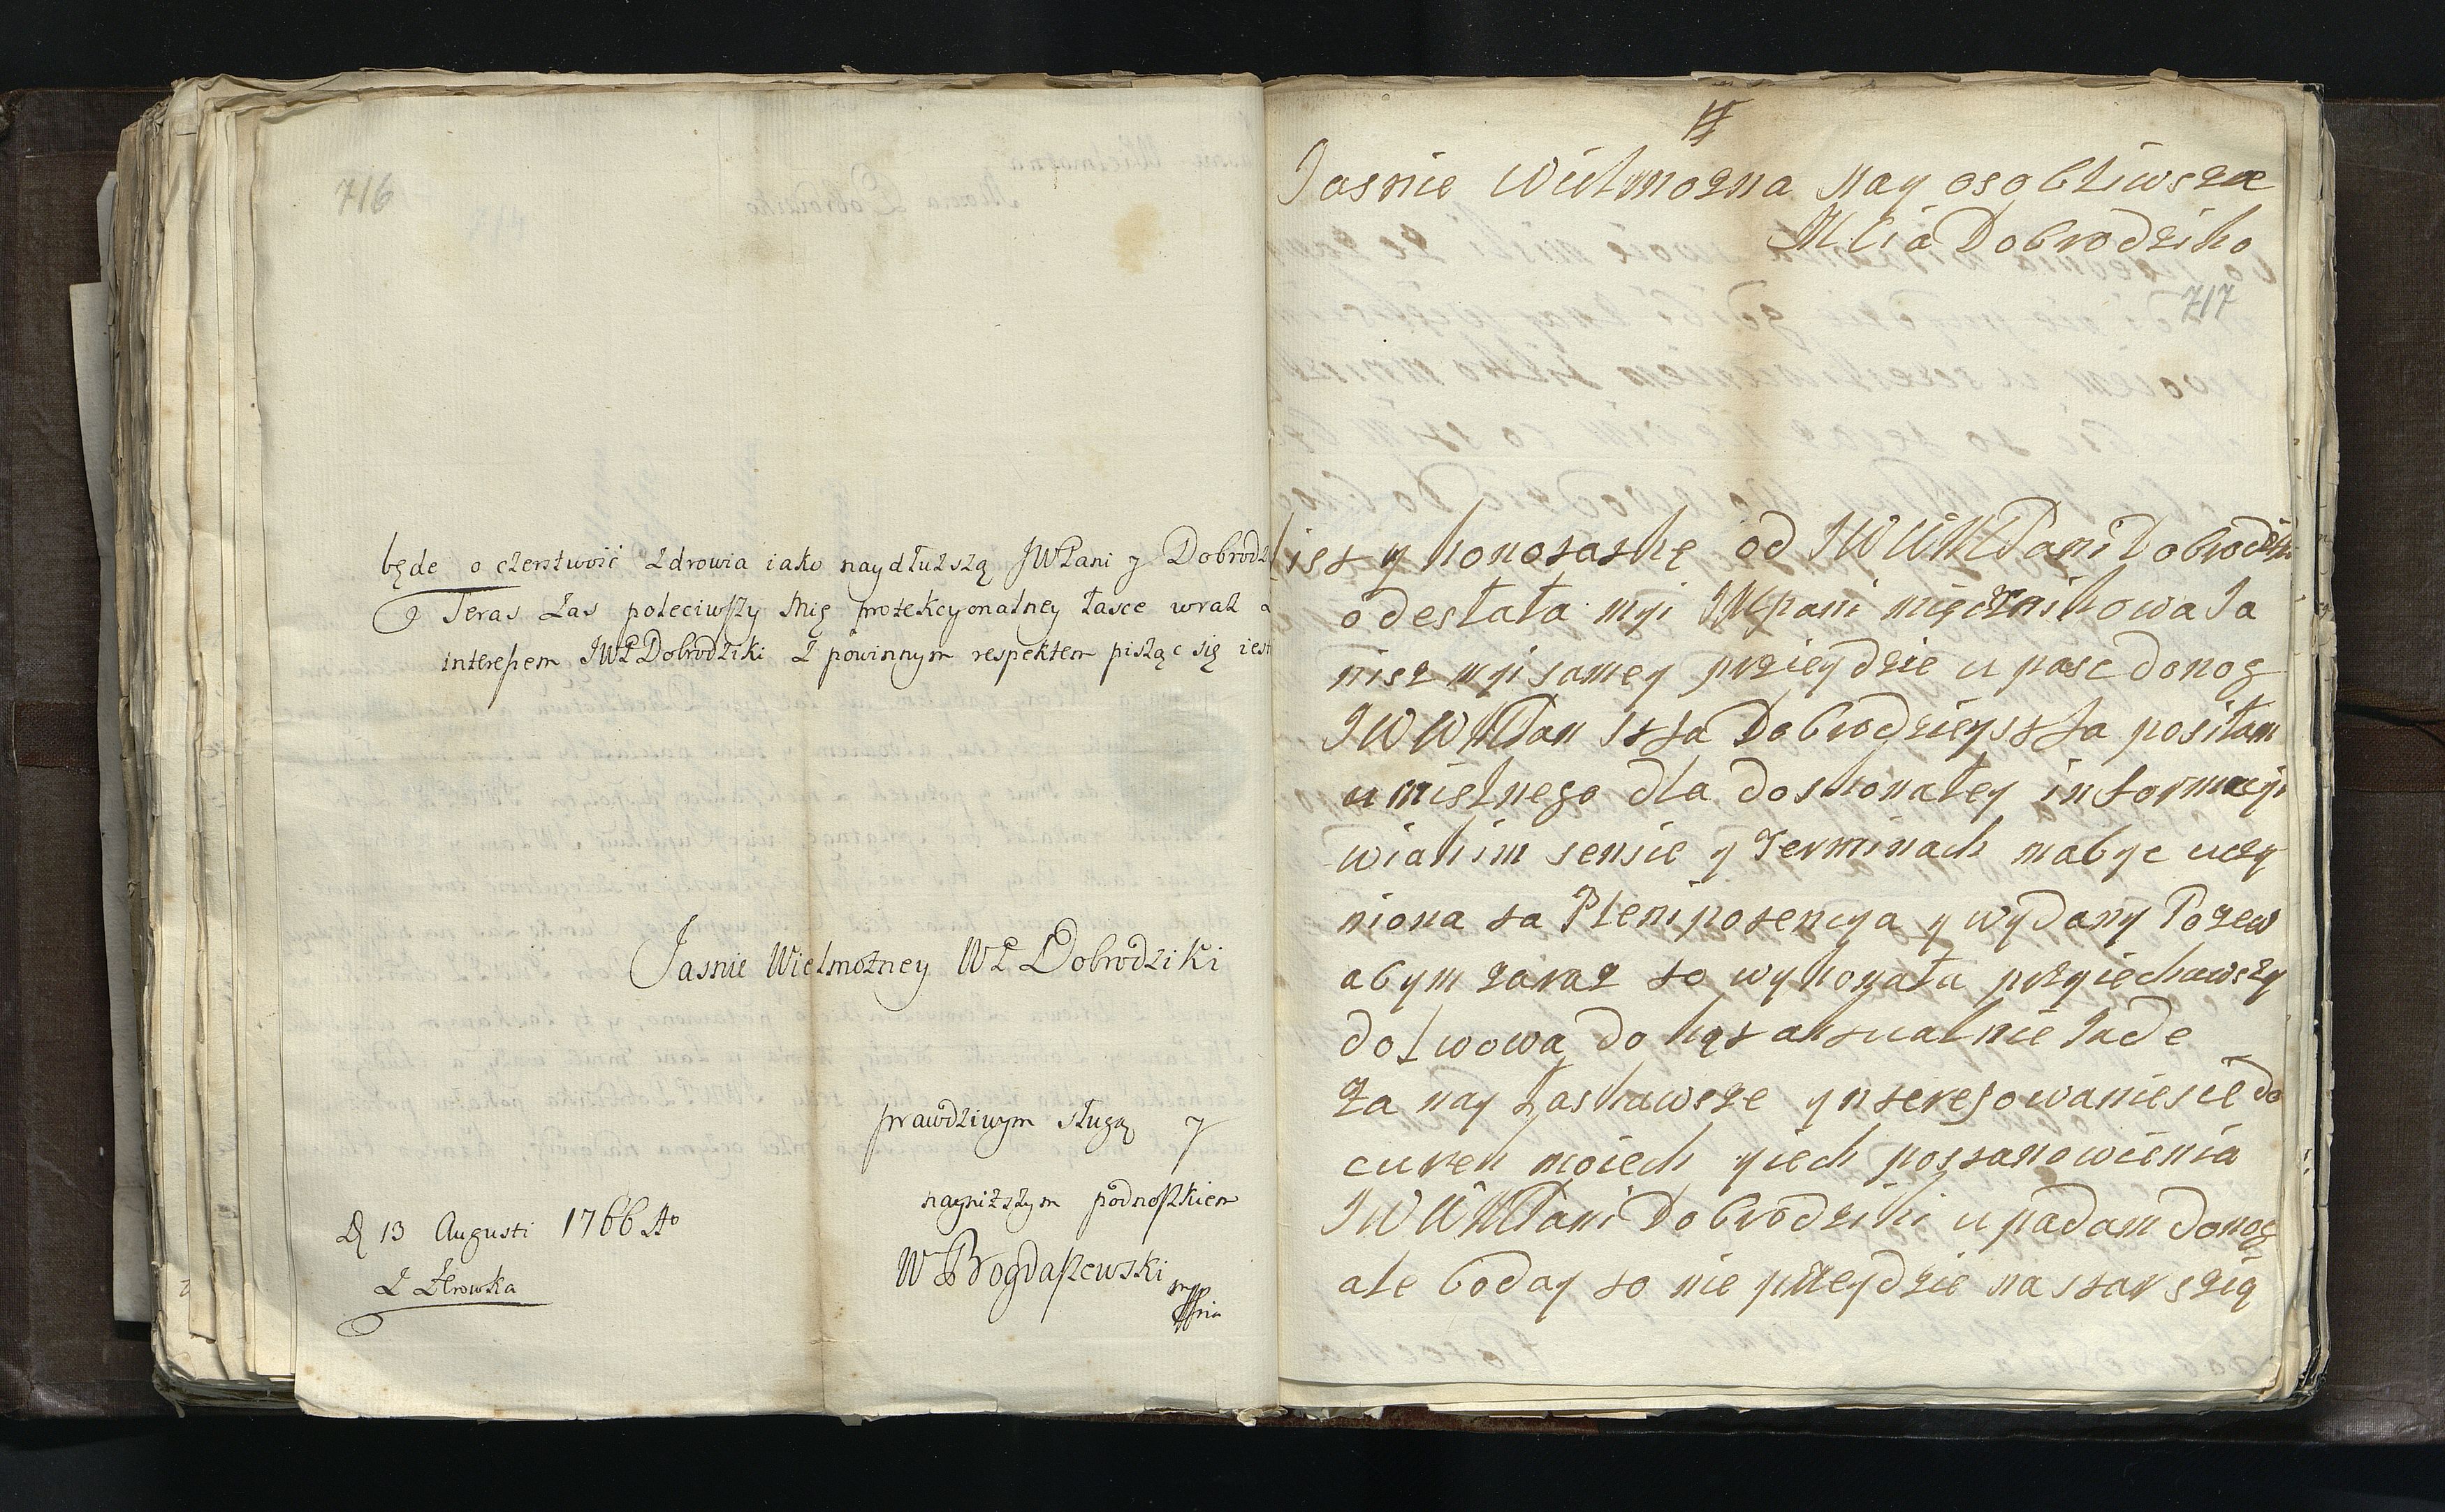 716
będe o czerstwość zdrowia iako naydłuższą JWPani y Dobrodz
Teras zas poleciwszy Mię protekcyonalney łasce wraz z
interessem JWP Dobrodziki z powinnym respektem pisząc się iest
Jasnie Wielmożney WP Dobrodziki
prawdziwym sługą y
nayniższym podnoszkiem
D 13 Augusti 1766 Ao
W Bogdaszewski mpp
Jasnie Wielmozna nay osobliwsza
Mcia Dobrodziko
717
list y konotatkę od JWWMPani Dobrodziki
odesłała myi JMpani mięcznikowa Ja
nisz myi samey przieydzie upasc donog
JWWMPan stfa Dobrodzieystfa posiłam
umislnego dla doskonałey informacyi
wiakim sensie y Terminach mabyc uczy
niona ta Plenipotencya y wydany Pozew
abym zaraz to wykonała przyiechawszy
do Lwowa do kąt aktualnie Jade
za nay łaskawsze ynteresowaniesie do
curek moiech yiech postanowienia
JWWMPani Dobrodziki upadam donog
ale boday to nie przeydzie na starszią